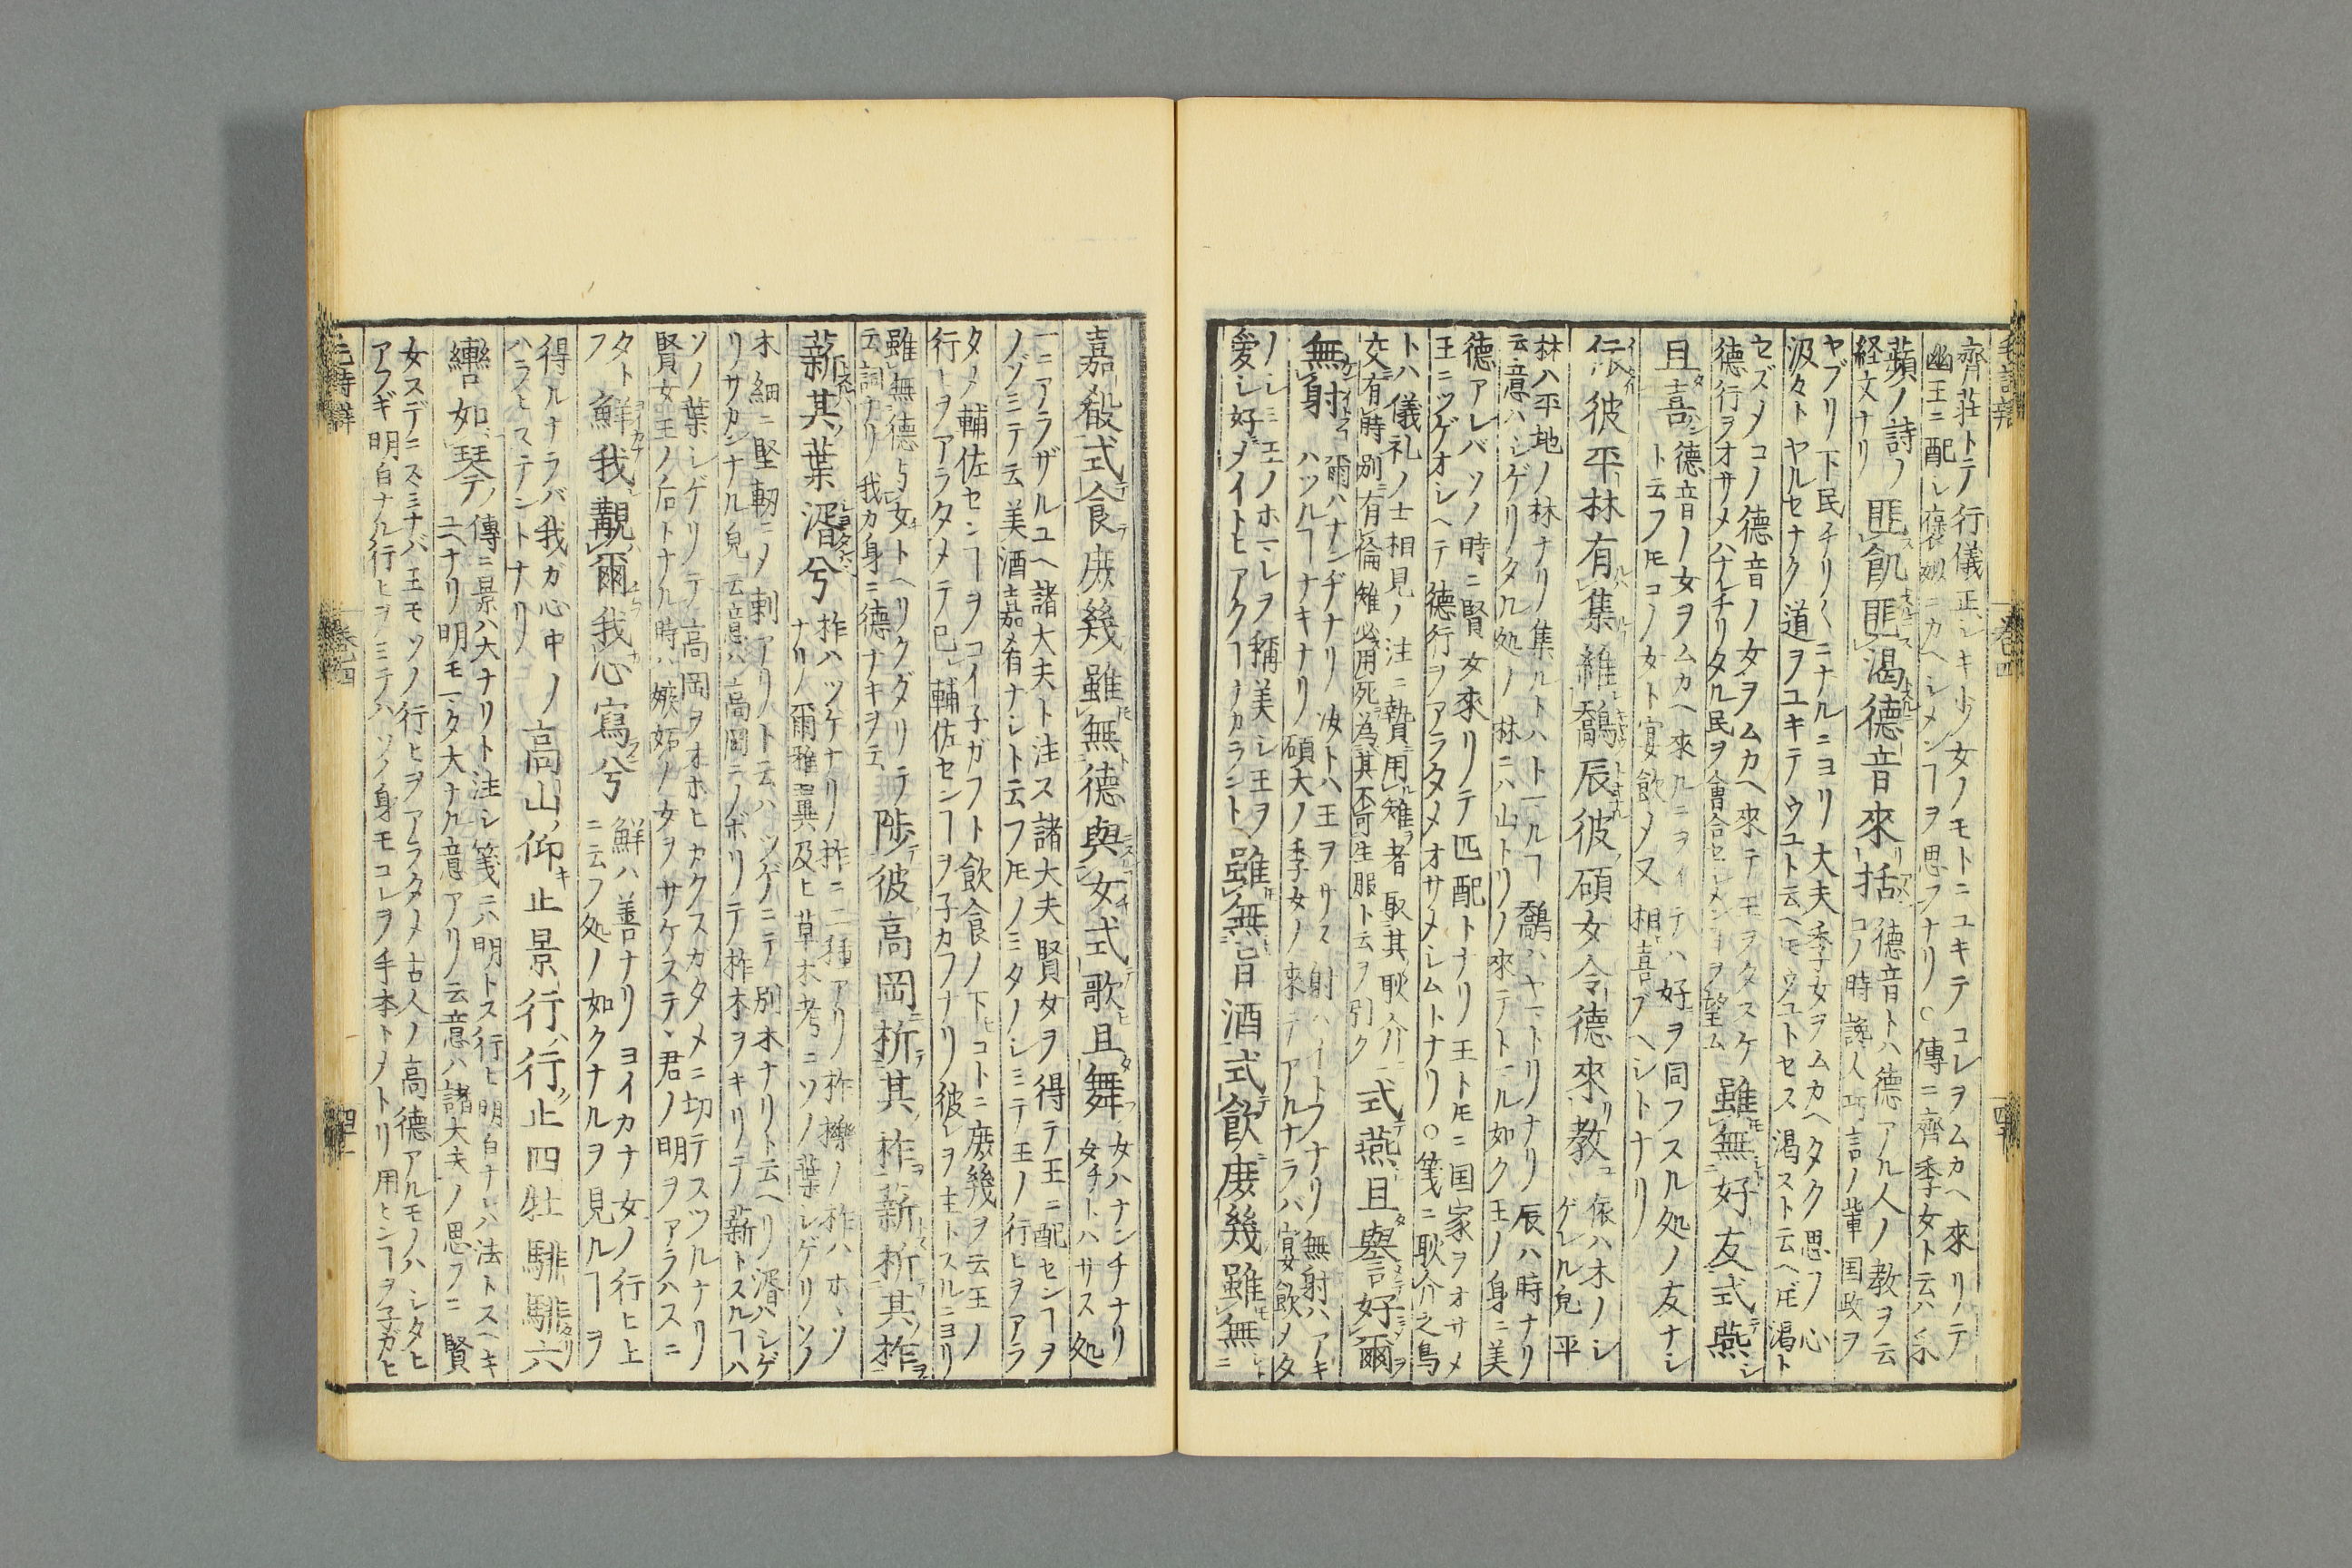 齊莊トテ行儀正レキ少女ノモトニユキテコレヲムカヘ來リノテ
幽王ニ配シ褒姒ニカヘシメンヿヲ思フナリ○傳ニ齊季女ト云ハ采
蘋ノ詩ノ
経文ナリ
匪飢匪渇德音來括
德音トハ德アル人ノ教ヲ云
コノ時讒人巧言ノ輩国政ヲ
ヤブリ下民チリ〱ニナルニヨリ大夫季女ヲムカヘタク思フノ心
汲々トヤルセナク道ヲユキテウユト云ヘモウユトセス渇スト云ヘ𪜈渇ト
セズメコノ德音ノ女ヲムカヘ來テ王ヲタスケ
德行ヲオサメハナレチリタル民ヲ會合セシメンヿヲ望ム
雖無好友式燕
且喜
德音ノ女ヲムカヘ來ルニヲイテハ好ヲ同フスル処ノ友ナシ
ト云フ𪜈コノ女ト宴飲メ又相喜ブヘシトナリ
依彼平林有集維鷮辰彼碩女令德來教
依ハ木ノシ
ゲレル皃平
林ハ平地ノ林ナリノ集ルトハトールヿ鷮ハヤドリノナリノ辰ハ時ナリ
云意ハシゲリタル処ノ林ニハ山トリノ來テトール如ク王ノ身ニ美
德アレバソノ時ニ賢女來リテ匹配トナリ王ト𪜈ニ国家ヲオサメ
王ニツゲオシヘテ德行ヲアラタメオサメシムトナリ○箋ニ耿介之鳥
トハ儀礼ノ士相見ノ注ニ贄用雉者取其耿介
交有時別有倫雉必用死為其不可生服ト云ヲ引ク
式燕且譽好爾
無射
爾ハナンヂナリノ汝トハ王ヲサリス射ハイトフナリノ無射ハアキ
ハツルヿナキナリノ碩大ノ季女ノ來テアルナラバ宴飲メタ
ノシミ王ノホマレヲ稱美シ王ヲ
愛シ好メイトヒアクヿノカラント
雖無旨酒式飲庶幾雖無
嘉殽式食庶幾雖無德與女式歌且舞
女ハナンチナリ
女チトハサス処
一ニアラザルユヘ諸大夫ト注ス諸大夫賢女ヲ得テ王ニ配センヿヲ
ノゾミテ云美酒嘉肴ナシト云フ𪜈ノミタノシミテ王ノ行ヒヲアラ
タメ輔佐センヿヲコイ子ガフト飲食ノ下コトニ庶幾ヲ云王ノ
行ヒヲアラタメテ已輔佐センヿヲ子カフナリ彼レヲ主トスルニヨリ
雖無德与女トヘリクダリテ
云詞ナリ我カ身ニ德ナキヲ云
陟彼高岡析其柞薪析其柞
薪其葉湑兮
柞ハツゲナリノ柞ニ二種アリノ柞櫟ノ柞ハホヽソ
ナリノ爾雅翼及ヒ草木考ニソノ葉シゲリソノ
木細ニ堅靭ニノ刺アリノト云ハツゲニテ別木ナリト云ヘリノ湑ハシゲ
リサカンナル皃云意ハ高岡ニノボリテ柞木ヲキリテ薪トスルヿハ
ソノ葉シゲリテ高岡ヲオホヒカクスカタメニ切テスツルナリ
賢女王ノ后トナル時ハ嫉妬ノ女ヲサケステヽ君ノ明ヲアラハスニ
タト
フ
鮮我覯爾我心寫兮
鮮ハ善ナリヨイカナ女ノ行ヒ上
ニ云フ処ノ如クナルヲ見ルヿヲ
得ルナラバ我ガ心中ノ
ハラヒステントナリノ
高山仰止景行行止四牡騑騑六
轡如琴
傳ニ景ハ大ナリト注シ箋ニハ明トス行ヒ明白ナレハ法トスヘキ
ユヘナリ明モ一タ大ナル意アリノ云意ハ諸大夫ノ思フニ賢
女スデニスミナバ王モソノ行ヒヲアラタメ古人ノ高德アルモノハシタヒ
アフギ明白ナル行ヒヲノミテハソノ身モコレヲ手本トメトリ用ヒンヿヲ子カヒ
毛詩辨
卷四